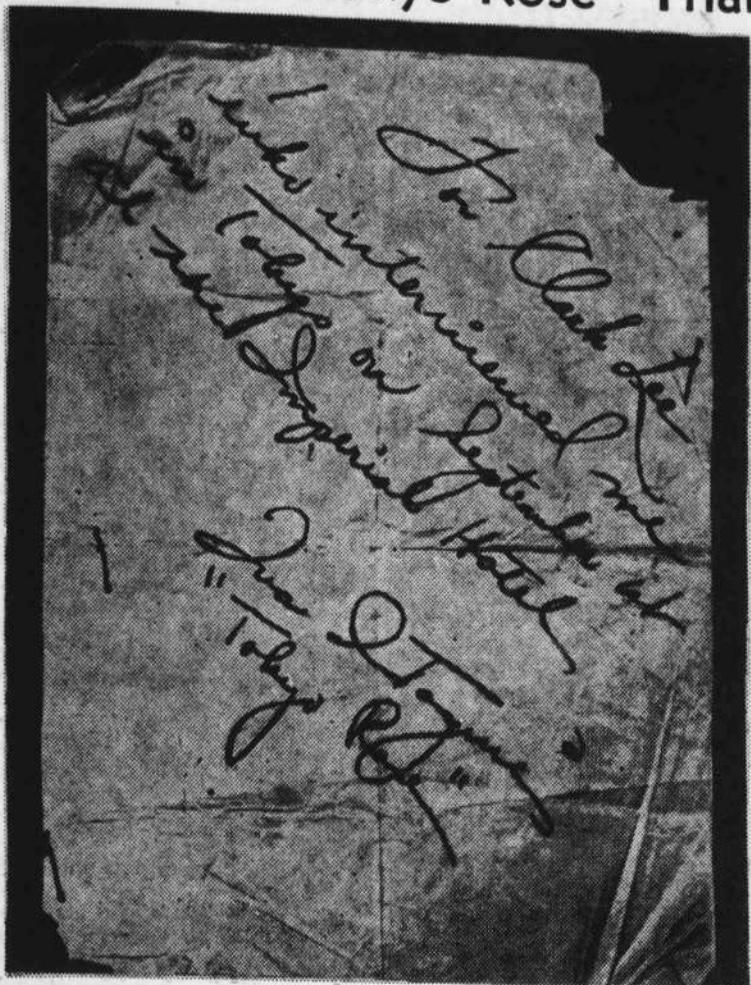 Rose
For Clark Lee
who interviewed me
in Tokyo on September 1st
at the Imperial Hotel
Iva I Toguri
"Tokyo Rose"